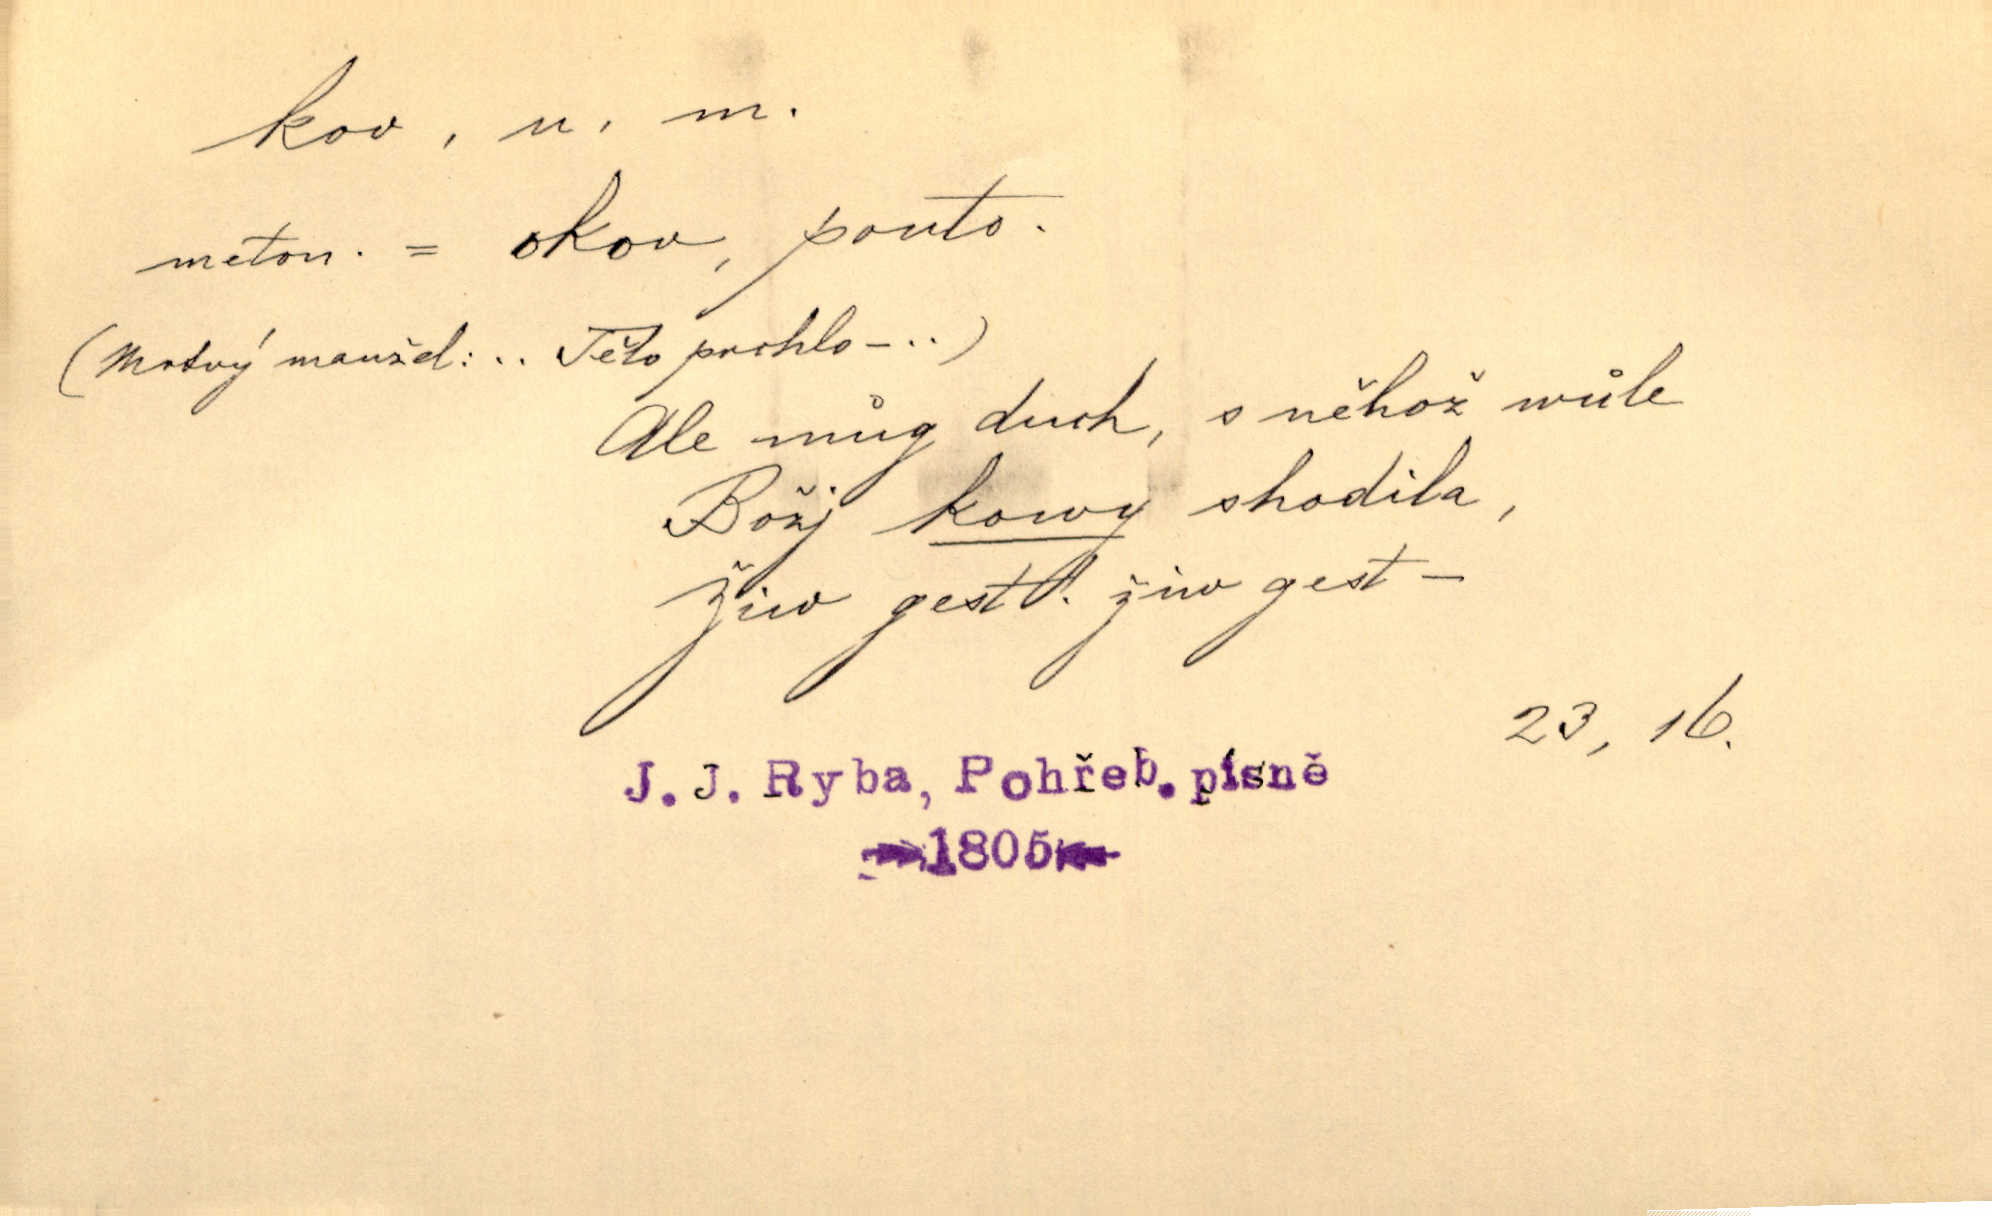 kov, u, m.
meton. = okov, pouto.
(Mrtvý manžel: .. Tělo prchlo - ..)
Ale můg duch, s něhož wůle
Božj kowy shodila,
živ gest! živ gest -
23, 16.
J. J. Ryba, Pohřeb. písně
1805